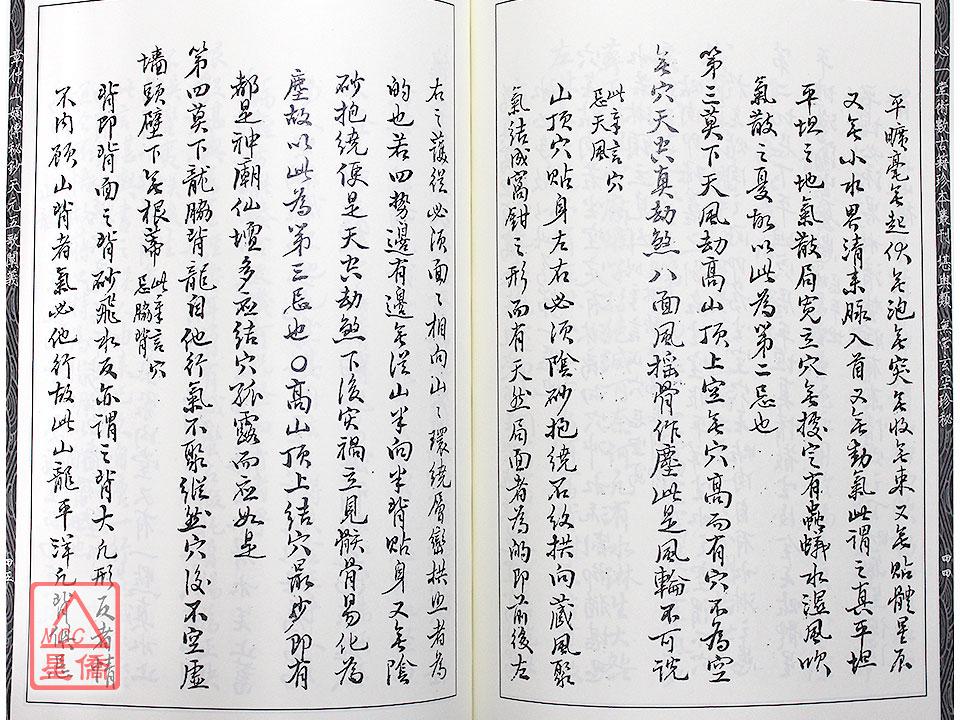 心一堂術數古籍珍本叢刊 堪輿類 無常玄空珍秘
四四
平曠毫無起伏無泡無突無收無束又無貼體星辰
又無小水界清來脉入首又無動氣此謂之真平坦
平坦之地氣散局寬立穴無據定有蟲蟻水濕風吹
氣散之憂故以此為第二忌也
第三莫下天風劫高山頂上空無穴高而有穴不為空
無穴天空真劫煞八面風搖骨作塵此是風輪不可說
此章言穴
忌天風
山頂穴貼身左右必須陰砂抱繞石紋拱向藏風聚
氣結成窩鉗之形而有天然局面者為的即前後左
右之護從必須面々相向山々環繞層巒拱照者為
的也若四勢邊有邊無從山半向半背貼身又無陰
砂抱繞便是天空劫煞下後灾禍立見骸骨易化為
塵故以此為第三忌也〇高山頂上結穴最妙即有
都是神廟仙壇多應結穴孤露而應如是
第四莫下龍脇背龍自他行氣不聚縱然穴後不空虛
墻頭壁下無根蒂
此章言穴
忌脇背
背即背面之背砂飛水反亦謂之背大凡形反者情
不內顧山背者氣必他行故此山龍平洋凡背俱忌
章仲山 秘鈔天元五歌闡義
四五
NCC
星僑